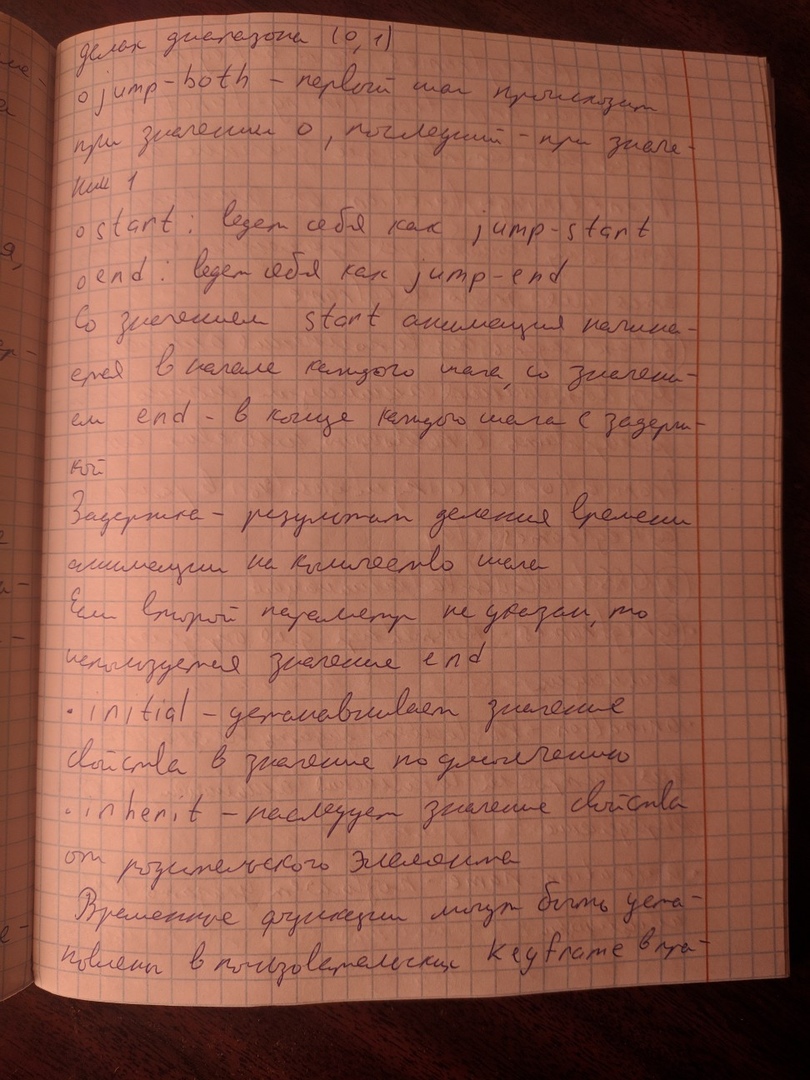 делах диапазона (0, 1)
o jump-both - первый шаг происходит
при значении 0, последний - при значе-
нии 1
o start: ведет себя как jump-start
o end: ведет себя как jump-end
Со значением start анимация начина-
ется в начале каждого шага, со значени-
ем end - в конце каждого шага с задерж-
кой
Задержка - результат деления времени
анимации на количество шагов
Если второй параметр не указан, то
используется значение end
• initial - устанавливает значение
свойства в значение по умолчанию
• inherit - наследует значение свойства
от родительского элемента
Временные функции могут быть уста-
новлены в пользовательских keyframe в пра-